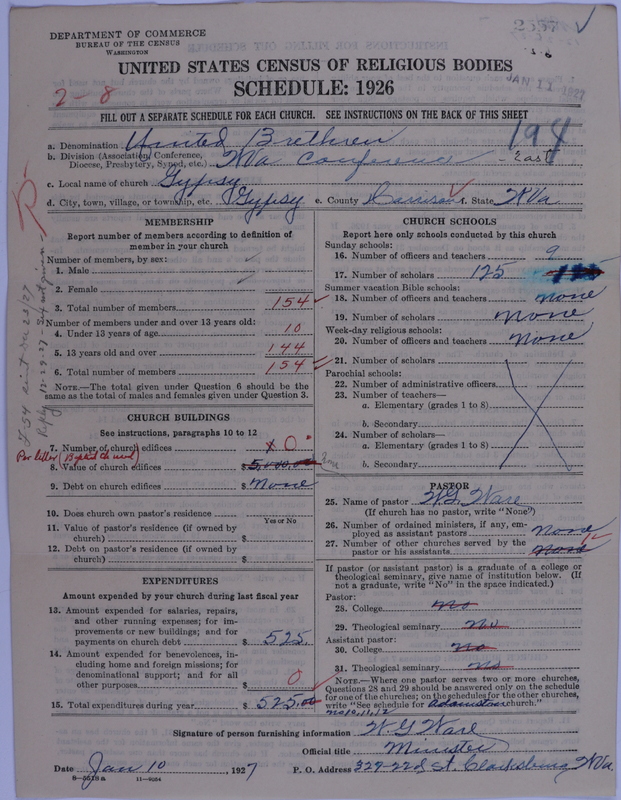 DEPARTMENT OF COMMERCE
BUREAU OF THE CENSUS
WASHINGTON
2557
JAN 11 1927
UNITED STATES CENSUS OF RELIGIOUS BODIES
SCHEDULE: 1926
2-8
FILL OUT A SEPARATE SCHEDULE FOR EACH CHURCH. SEE INSTRUCTIONS ON THE BACK OF THIS SHEET
194
a. Denomination United Brethren
b. Division (Association, Conference, Diocese, Presbytery, Synod, etc.) W Va Conference - East
c. Local name of church Gypsy
d. City, town, village, or township, etc. Gypsy e. County Harrison f. State W Va
MEMBERSHIP
Report number of members according to definition of
member in your church
Number of members, by sex:
1. Male
2. Female
3. Total number of members 154
Number of members under and over 13 years old:
4. Under 13 years of age 10
5. 13 years old and over 144
6. Total number of members 154
NOTE.—The total given under Question 6 should be the
same as the total of males and females given under Question 3.
CHURCH BUILDINGS
See instructions, paragraphs 10 to 12
7. Number of church edifices 0
Per letter (Baptist church)
8. Value of church edifices $ 5,000.00
9. Debt on church edifices $ None
10. Does church own pastor's residence
Yes or No
11. Value of pastor's residence (if owned by
church) $
12. Debt on pastor's residence (if owned by
church) $
EXPENDITURES
Amount expended by your church during last fiscal year
13. Amount expended for salaries, repairs,
and other running expenses; for im-
provements or new buildings; and for
payments on church debt $ 525
14. Amount expended for benevolences, in-
cluding home and foreign missions; for
denominational support; and for all
other purposes $ 0
15. Total expenditures during year $ 525.00
CHURCH SCHOOLS
Report here only schools conducted by this church
Sunday schools:
16. Number of officers and teachers 9
17. Number of scholars 125
Summer vacation Bible schools:
18. Number of officers and teachers none
19. Number of scholars none
Week-day religious schools:
20. Number of officers and teachers none
21. Number of scholars
Parochial schools:
22. Number of administrative officers
23. Number of teachers—
a. Elementary (grades 1 to 8)
b. Secondary
24. Number of scholars—
a. Elementary (grades 1 to 8)
b. Secondary
PASTOR
25. Name of pastor W G Ware
(If church has no pastor, write "None")
26. Number of ordained ministers, if any, em-
ployed as assistant pastors none
27. Number of other churches served by the
pastor or his assistants none
If pastor (or assistant pastor) is a graduate of a college or
theological seminary, give name of institution below. (If
not a graduate, write "No" in the space indicated.)
Pastor:
28. College No
29. Theological seminary No
Assistant pastor:
30. College No
31. Theological seminary No
NOTE.—Where one pastor serves two or more churches,
Questions 28 and 29 should be answered only on the schedule
for one of the churches; on the schedules for the other churches,
write "See schedule for Adamston church."
No 10, 11, 12
Signature of person furnishing information W G Ware
Official title Minister
Date Jan 10, 1927 P. O. Address 329-22d St. Clarksburg W Va.
8-5518a 11-9054